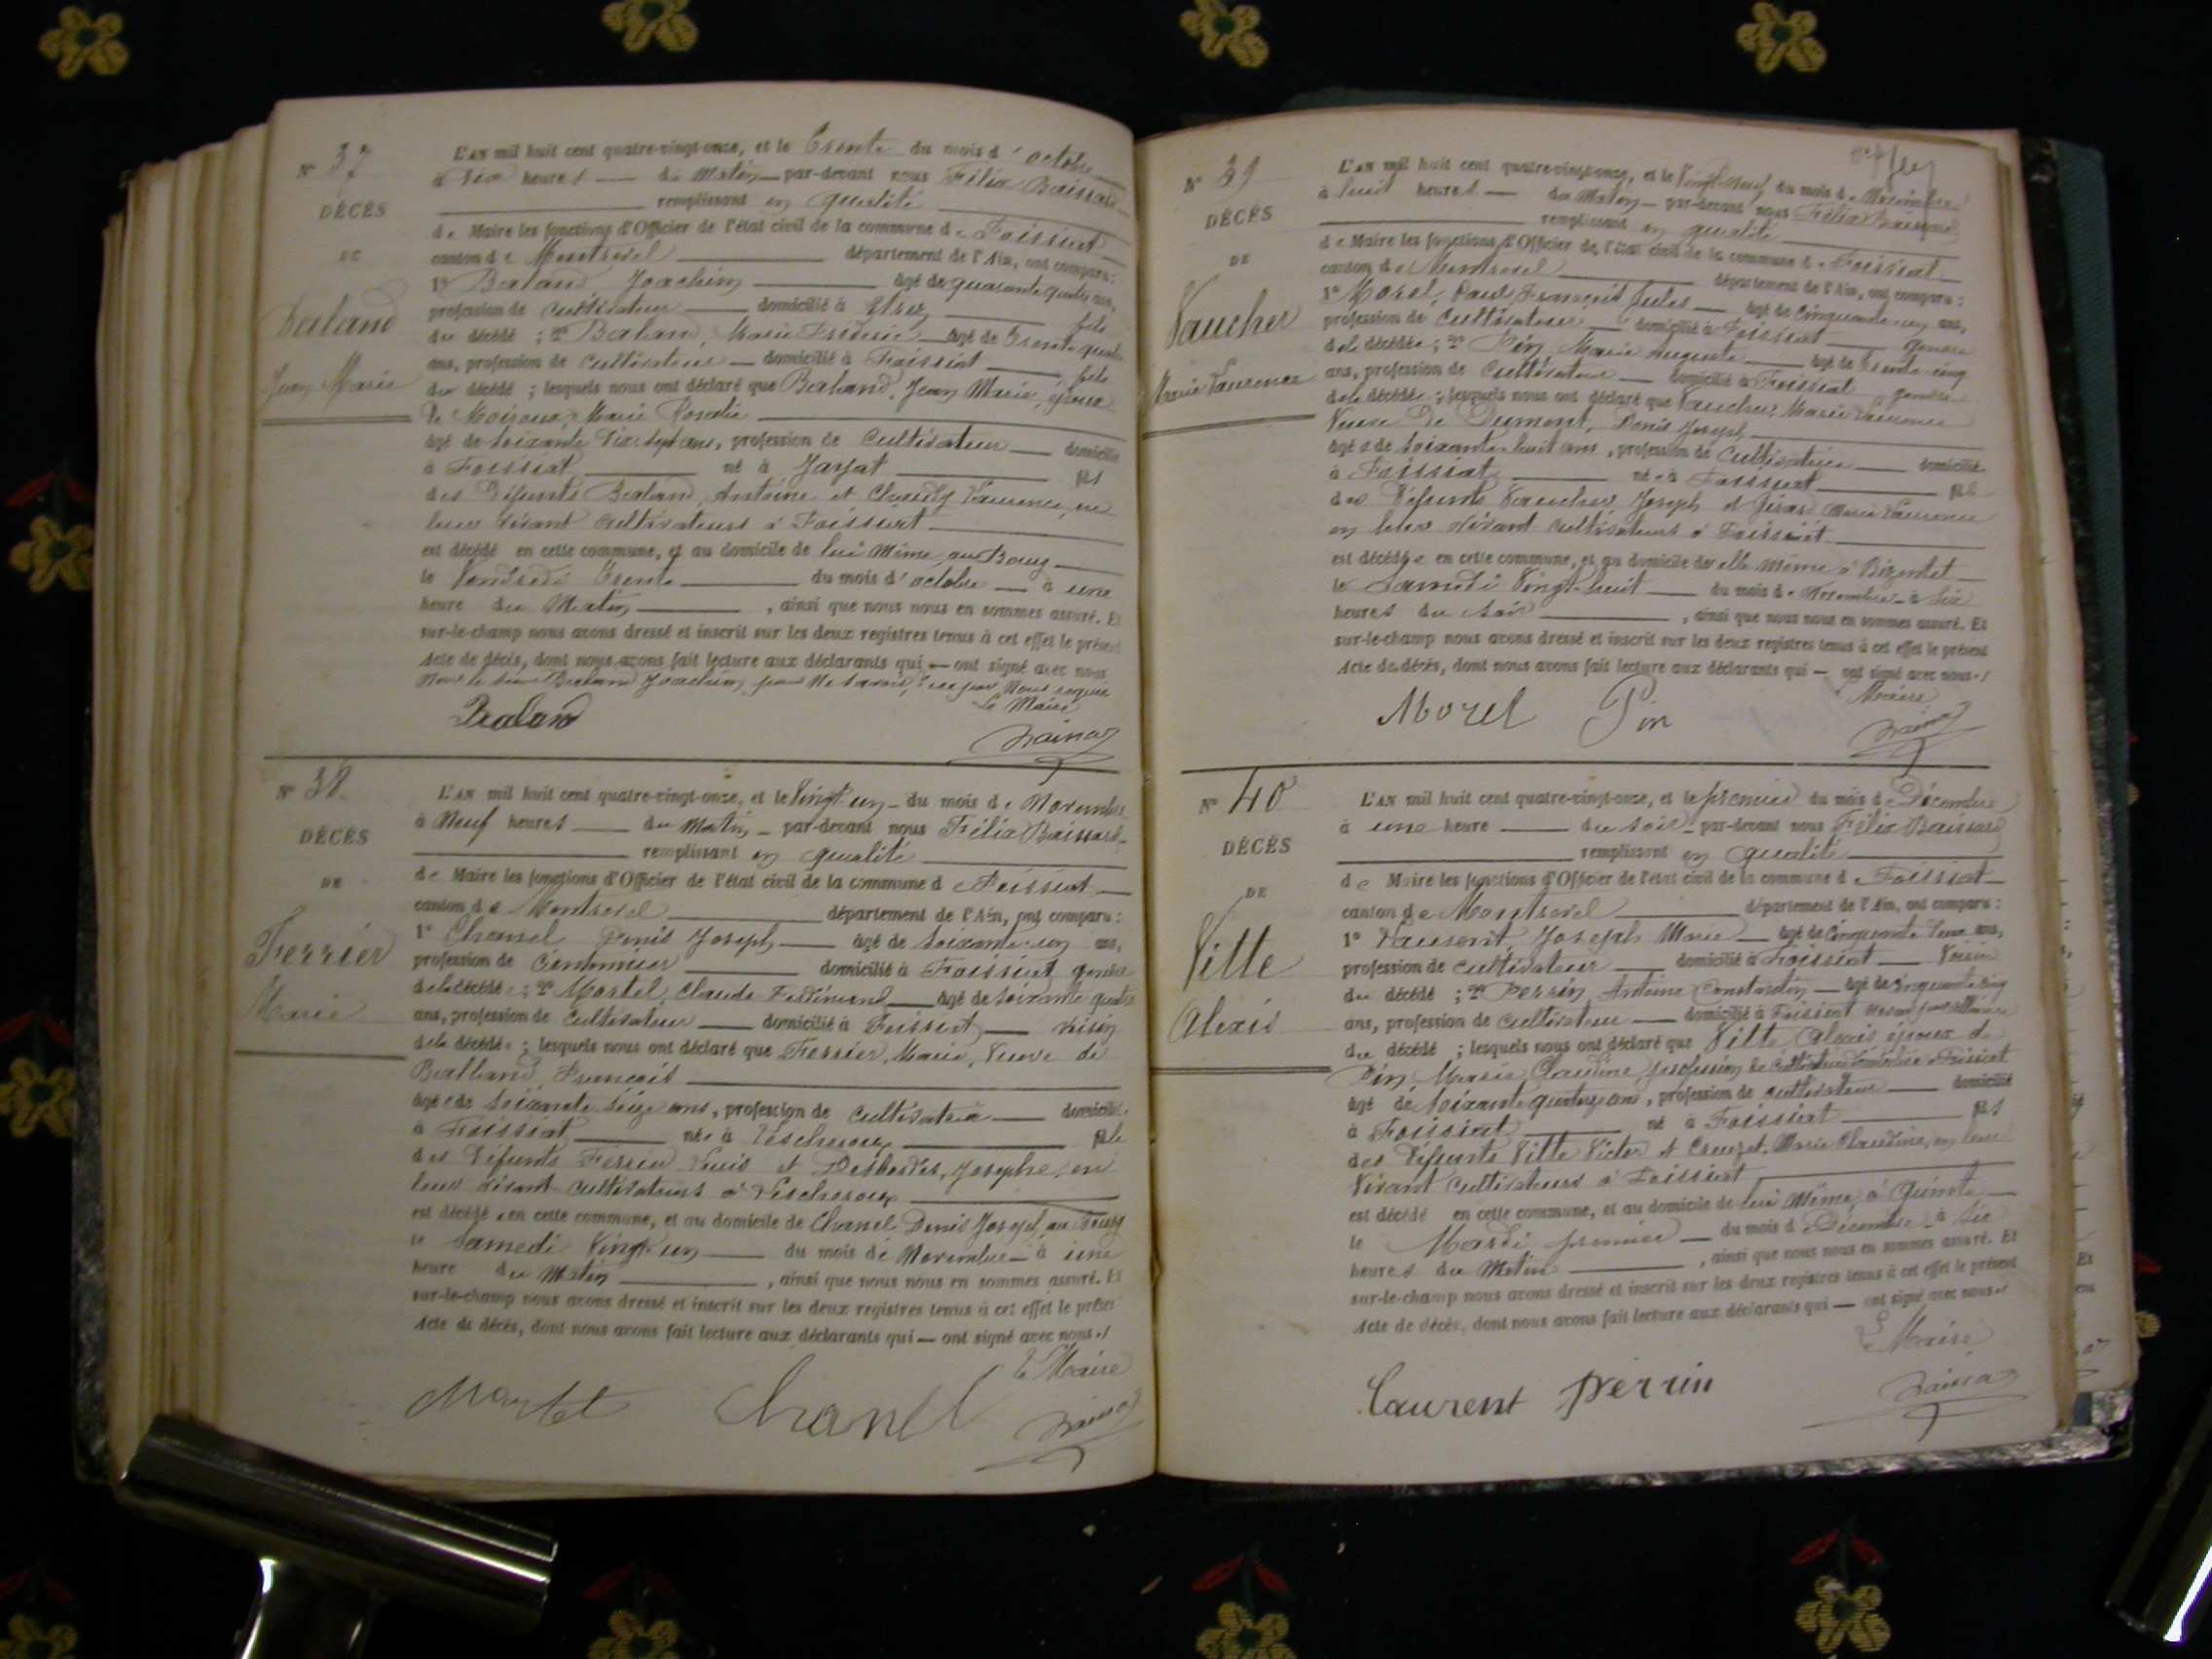 N° 37
DÉCÈS
DE
Baland
Jean Marie
L'AN mil huit cent quatre-vingt-onze, et le Trente du mois d'octobre
à Six heures du Matin par-devant nous Félix Baissard
remplissant en qualité
de Maire les fonctions d'Officier de l'état civil de la commune de Foissiat
canton de Montrevel département de l'Ain, ont comparu :
1° Baland Joachim âgé de quarante quatre ans,
profession de Cultivateur domicilié à fils
du décédé ; 2° Balan, Marie Frédéric âgé de Trente quatre
ans, profession de Cultivateur domicilié à Foissiat fils
du décédé ; lesquels nous ont déclaré que Baland, Jean Marie, époux
de Moizoux, Marie Rosalie
âgé de soixante Dix-Sept ans, profession de Cultivateur domicilié
à Foissiat né à Jayat fils
des Défunts Baland, Antoine et Laurence, en
leur vivant cultivateurs à Foissiat
est décédé en cette commune, et au domicile de lui Même, au Bourg
le Vendredi Trente du mois d'octobre à une
heure du Matin , ainsi que nous nous en sommes assuré. Et
sur-le-champ nous avons dressé et inscrit sur les deux registres tenus à cet effet le présent
Acte de décès, dont nous avons fait lecture aux déclarants qui — ont signé avec nous
Non le sieur Baland Joachim pour Ne savoir, de ce par Nous requis
Le Maire
Baland
N° 38
DÉCÈS
DE
Ferrier
Marie
L'AN mil huit cent quatre-vingt-onze, et le Vingt-un du mois de Novembre
à Neuf heures du Matin par-devant nous Félix Baissard
remplissant en qualité
de Maire les fonctions d'Officier de l'état civil de la commune de Foissiat
canton de Montrevel département de l'Ain, ont comparu :
1° Chanel Denis Joseph âgé de soixante-un ans,
profession de Cantonnier domicilié à Foissiat gendre
de la décédée ; 2° Martel, Claude Ferdinand âgé de soixante quatre
ans, profession de Cultivateur domicilié à Foissiat voisin
de la décédée ; lesquels nous ont déclaré que Ferrier, Marie, Veuve de
Balland, François
âgée de soixante Seize ans, profession de Cultivatrice domiciliée
à Foissiat née à Lescheroux fille
des Défunts Ferrier Louis et Desbordes, Josephe, en
leur vivant cultivateurs à Lescheroux
est décédée en cette commune, et au domicile de Chanel Denis Joseph, au Bourg
le Samedi Vingt-un du mois de Novembre à une
heure du Matin , ainsi que nous nous en sommes assuré. Et
sur-le-champ nous avons dressé et inscrit sur les deux registres tenus à cet effet le présent
Acte de décès, dont nous avons fait lecture aux déclarants qui — ont signé avec nous
Le Maire
Martel Chanel
N° 39
DÉCÈS
DE
Vaucher
Marie Laurence
L'AN mil huit cent quatre-vingt-onze, et le Vingt-Neuf du mois de Novembre
à huit heures du Matin par-devant nous Félix Baissard
remplissant en qualité
de Maire les fonctions d'Officier de l'état civil de la commune de Foissiat
canton de Montrevel département de l'Ain, ont comparu :
1° Morel, Paul François Jules âgé de Cinquante-un ans,
profession de Cultivateur domicilié à Foissiat gendre
de la décédée ; 2° Pin, Marie Auguste âgé de Trente-cinq
ans, profession de Cultivateur domicilié à Foissiat gendre
de la décédée ; lesquels nous ont déclaré que Vaucher, Marie Laurence
Veuve De Dumont, Denis Joseph
âgée de soixante-huit ans, profession de Cultivatrice domiciliée
à Foissiat née à Foissiat fille
des Défunts Vaucher Joseph et Marie Laurence
en leur vivant cultivateurs à Foissiat
est décédée en cette commune, et au domicile de elle même à
le Samedi Vingt-huit du mois de Novembre à Six
heures du Soir , ainsi que nous nous en sommes assuré. Et
sur-le-champ nous avons dressé et inscrit sur les deux registres tenus à cet effet le présent
Acte de décès, dont nous avons fait lecture aux déclarants qui — ont signé avec nous
Maire
Morel Pin
N° 40
DÉCÈS
DE
Vitte
Alexis
L'AN mil huit cent quatre-vingt-onze, et le premier du mois de Décembre
à une heure du soir par-devant nous Félix Baissard
remplissant en qualité
de Maire les fonctions d'Officier de l'état civil de la commune de Foissiat
canton de Montrevel département de l'Ain, ont comparu :
1° Laurent, Joseph Marie âgé de Cinquante Deux ans,
profession de cultivateur domicilié à Foissiat Voisin
du décédé ; 2° Perrin, Antoine Constantin âgé de Cinquante Cinq
ans, profession de cultivateur domicilié à Foissiat
du décédé ; lesquels nous ont déclaré que Vitte, Alexis époux de
Pin, Marie Claudine, profession de Cultivatrice à Foissiat
âgé de soixante quatorze ans, profession de cultivateur domicilié
à Foissiat né à Foissiat fils
des Défunts Vitte Victor et Creuzet, Marie Claudine, en leur
Vivant cultivateurs à Foissiat
est décédé en cette commune, et au domicile de lui Même, à
le Mardi premier du mois de Décembre à Six
heures du Matin , ainsi que nous nous en sommes assuré. Et
sur-le-champ nous avons dressé et inscrit sur les deux registres tenus à cet effet le présent
Acte de décès, dont nous avons fait lecture aux déclarants qui — ont signé avec nous
Le Maire
Laurent Perrin